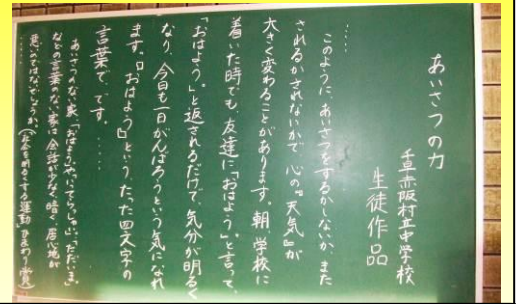 あいさつの力
千早赤阪村立中学校
生徒作品
……
このように、あいさつをするかしないか、また
されるかされないかで、心の『天気』が
大きく変わることがあります。朝、学校に
着いた時でも、友達に『おはよう。』と言って、
『おはよう。』と返されるだけで、気分が明るく
なり、今日も一日がんばろうという気になれ
ます。『おはよう』という、たった四文字の
言葉で、です。……
あいさつのない家、「おはよう」や「いってらっしゃい」、「ただいま」
などの言葉のない家は会話が少なく暗く、居心地が
悪いのではないでしょうか。(社会を明るくする運動 ひまわり賞)
……